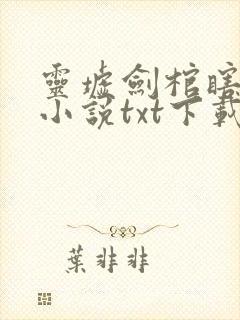 靈墟劍棺瞎
小說txt下載
葉非非